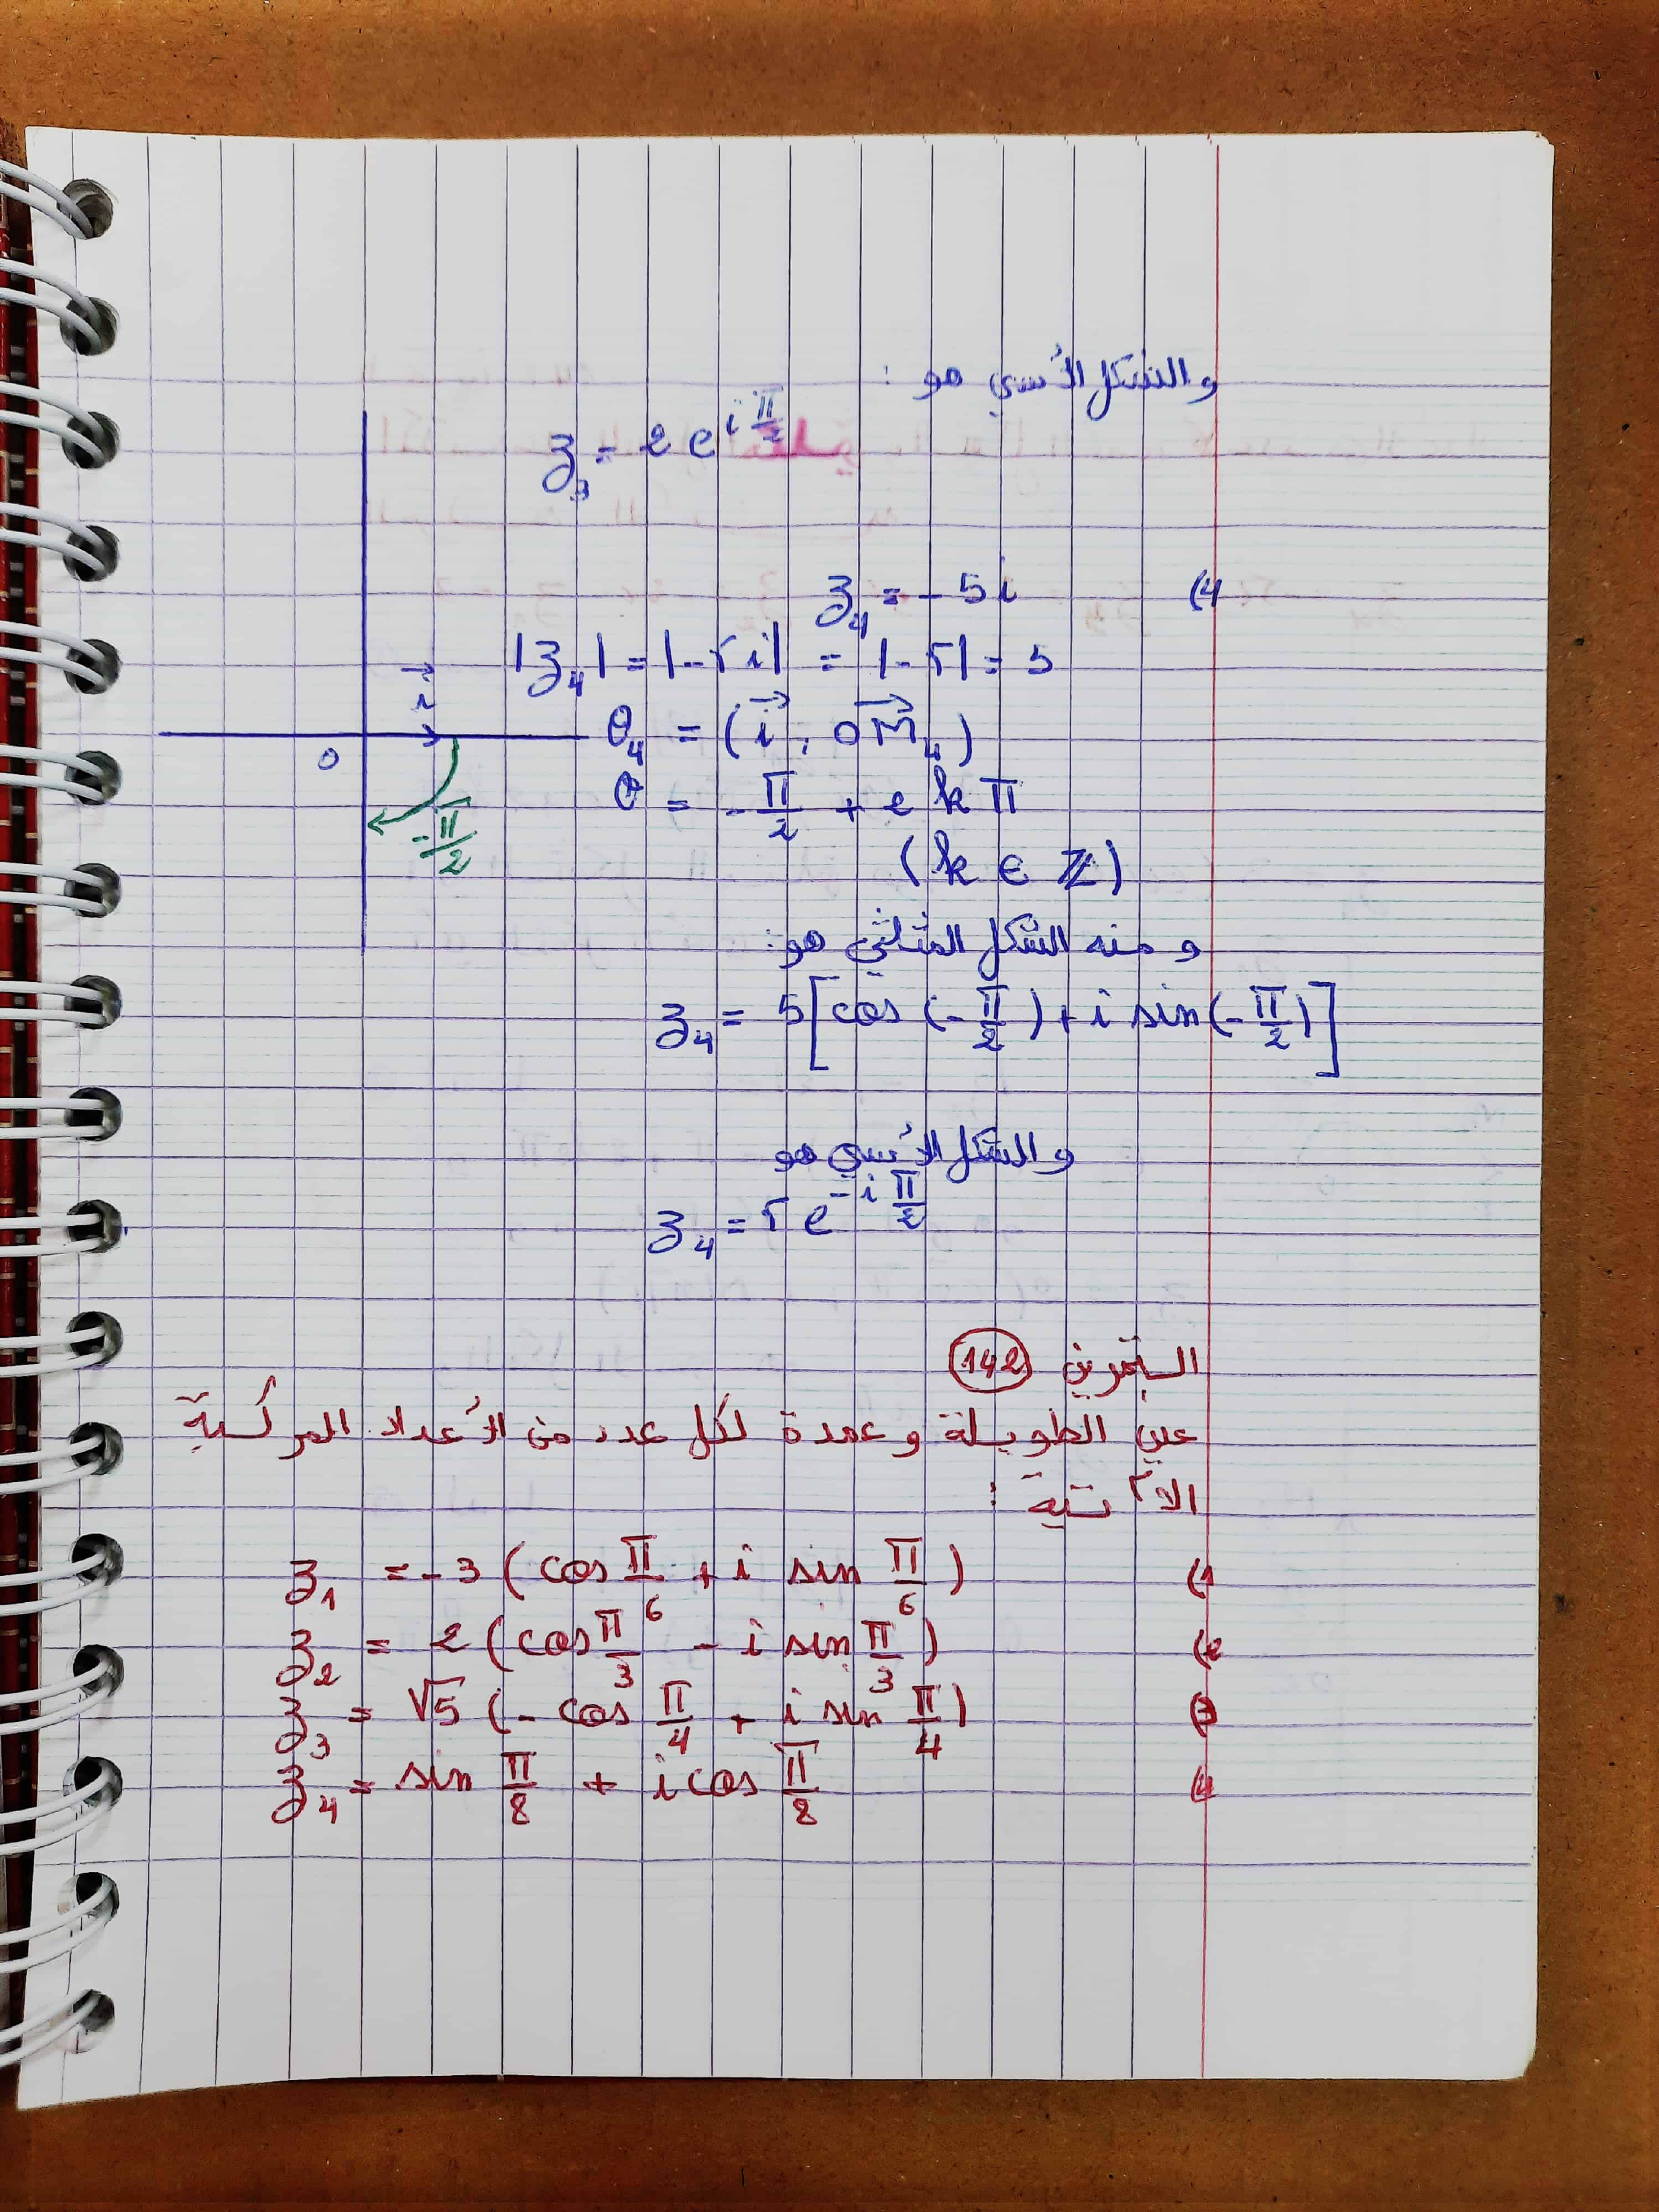 والشكل الأسي هو :
z₃ = 2 e^{i π/2}
4) z₄ = - 5 i
|z₄| = |-5i| = |-5| = 5
θ₄ = (i⃗ , OM⃗₄)
θ = - π/2 + 2 k π
(k ∈ ℤ)
i⃗
O
-π/2
و منه الشكل المثلثي هو :
z₄ = 5 [cos (- π/2) + i sin (- π/2)]
و الشكل الأسي هو
z₄ = 5 e^{-i π/2}
التمرين 142
عين الطويلة و عمدة لكل عدد من الأعداد المركبة
الآتية :
1) z₁ = - 3 (cos π/6 + i sin π/6)
2) z₂ = 2 (cos π/3 - i sin π/3)
3) z₃ = √5 (- cos π/4 + i sin π/4)
4) z₄ = sin π/8 + i cos π/8